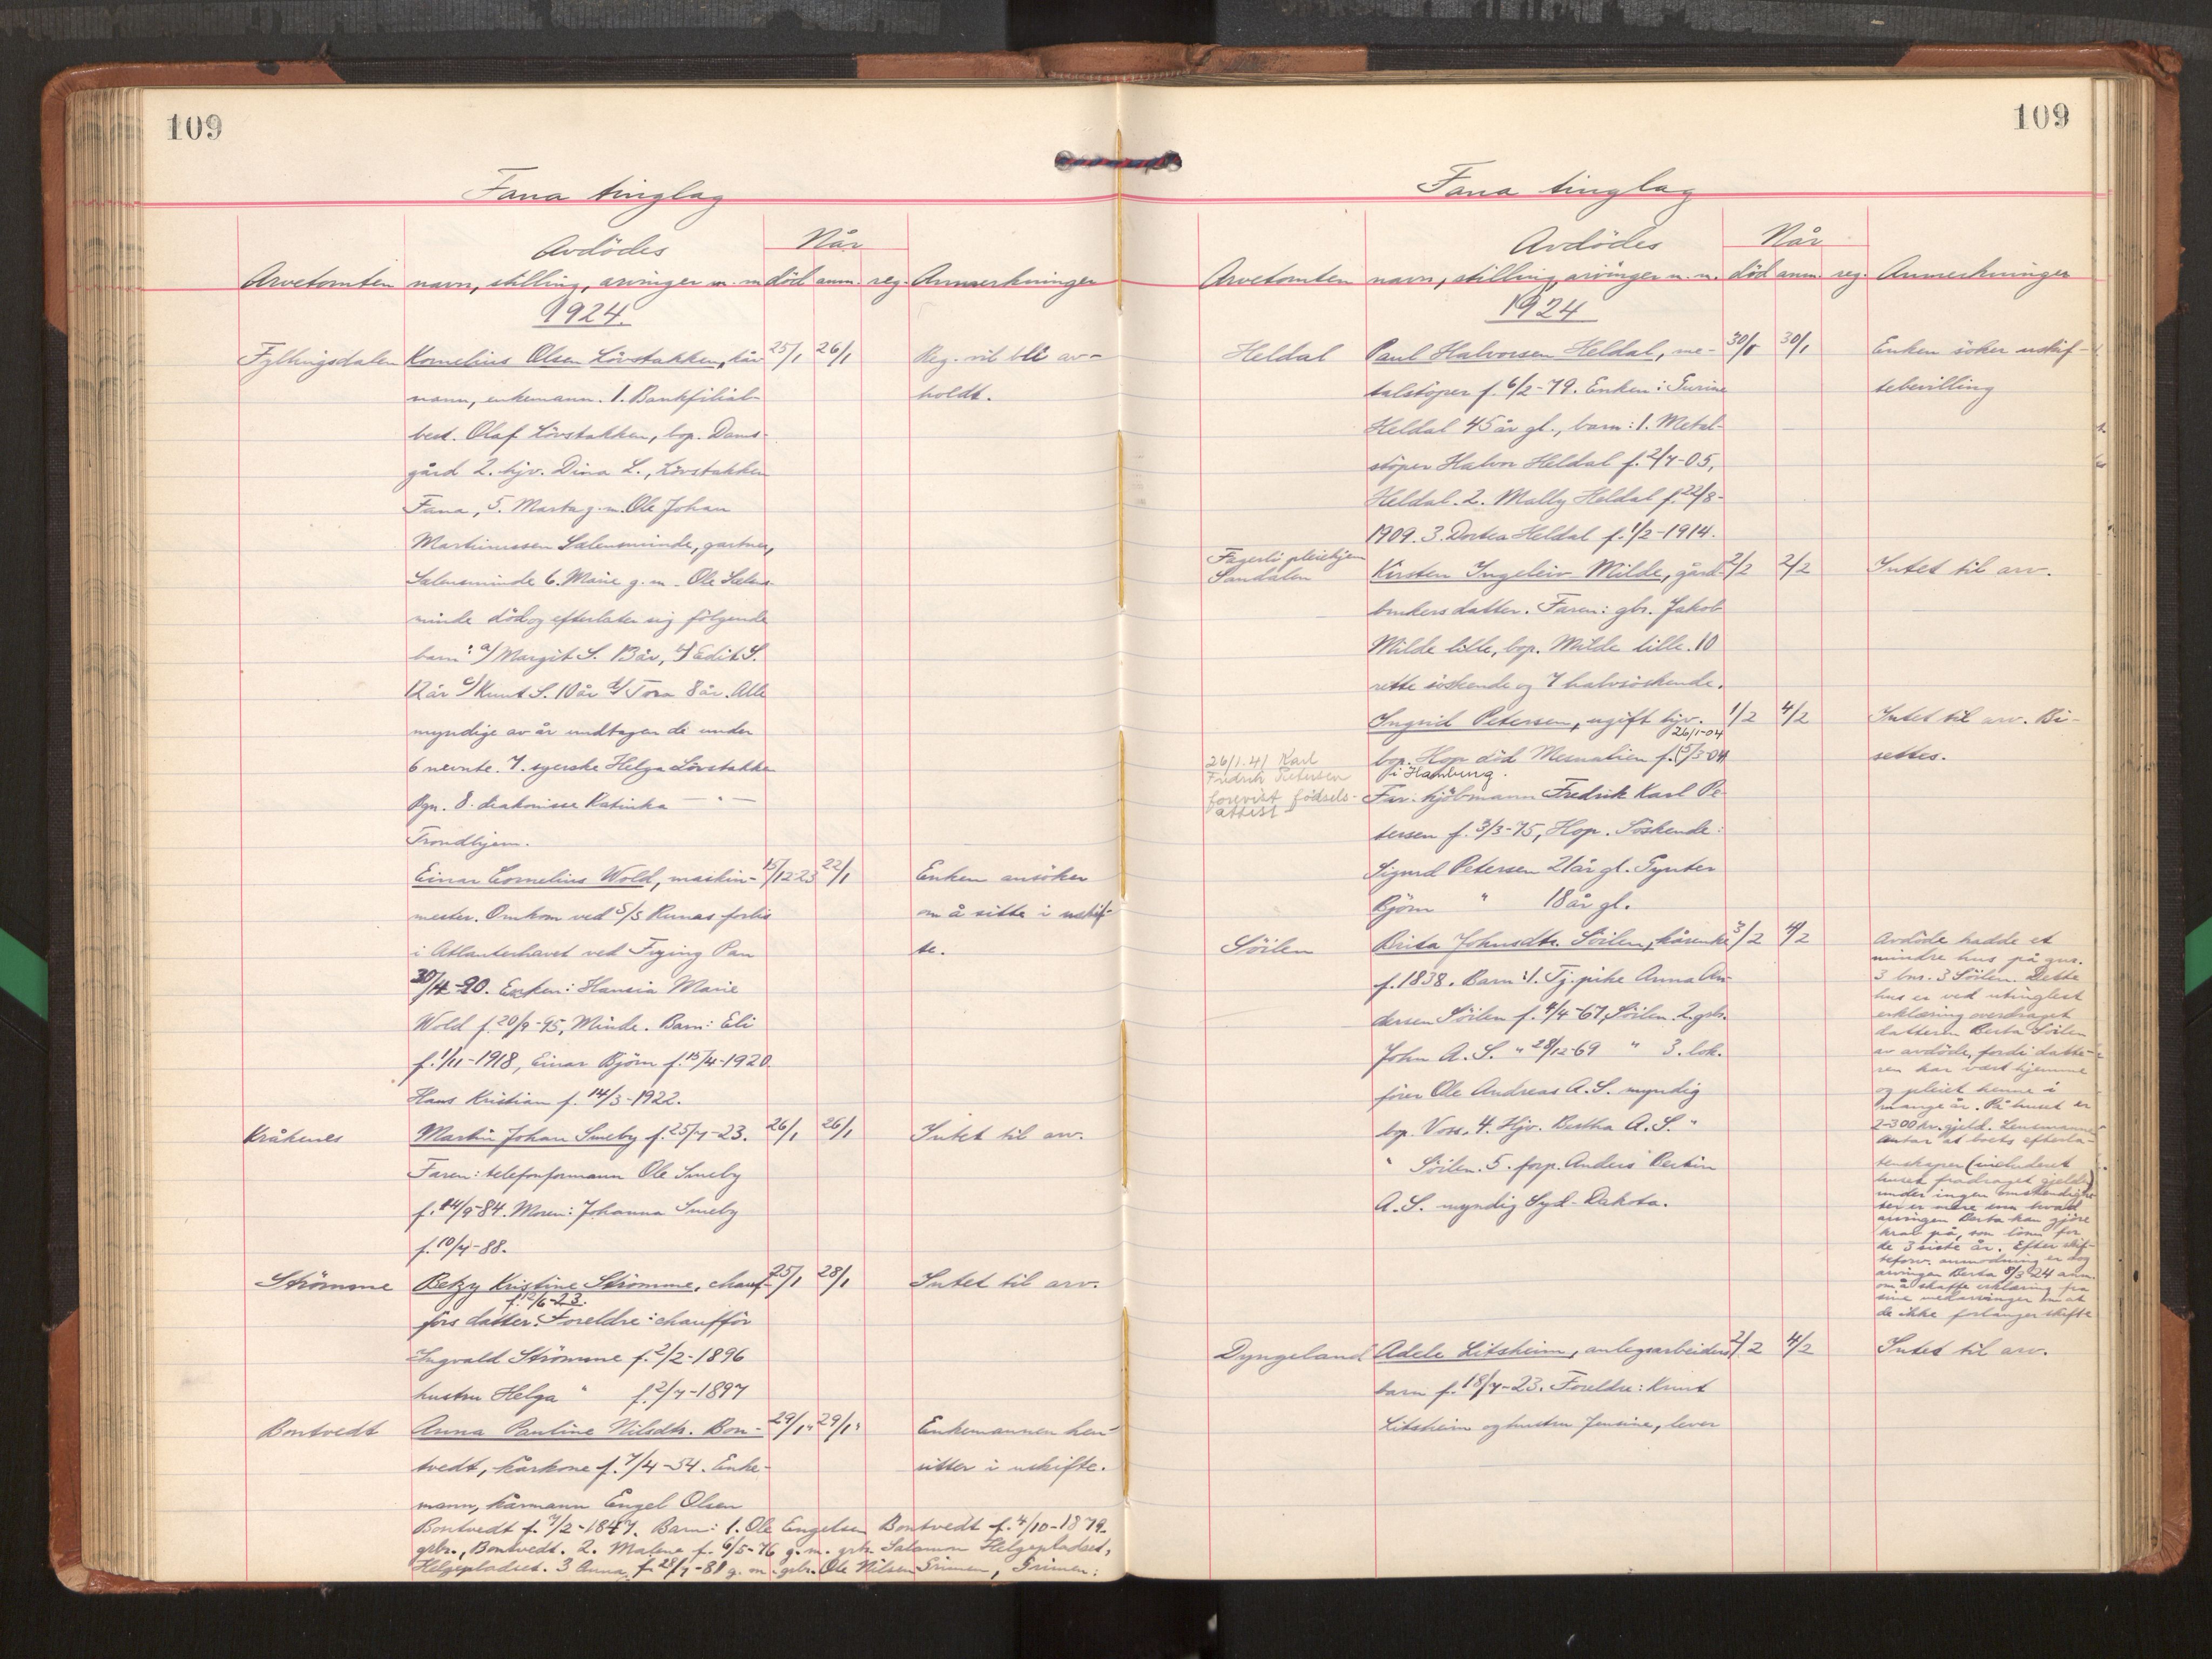 109
Fana tinglag
Avdödes
Når
Arvetomten navn, stilling, arvinger m. m död anm. reg. Anmerkninger
1924.
Fyllingsdalen Kornelius Olsen Lövstakken, kår- 25/1 26/1 Reg. vil bli av-
mann, enkemann. 1. Bankfilial- holdt.
best. Olaf Lövstakken, bop. Dams-
gård 2. hjv. Dina L., Lövstakken
Fana, 5. Marta g. m. Ole Johan
Martinussen Sælensminde, gartner,
Sælensminde 6. Marie g. m. Ole Sælens-
minde död og efterlater sig fölgende
barn: a/ Margit S. 13 år, b/ Edit S.
12 år c/ Knut S. 10 år d/ Tora 8 år. Alle
myndige av år undtagen de under
6 nevnte. 7. syerske Helga Lövstakken
Bgn. 8. diakonisse Katinka — " —
Trondhjem.
Einar Cornelius Wold, maskin- 15/12-23 22/1 Enken ansöker
mester. Omkom ved S/S Runas forlis om å sitte i uskif-
i Atlanterhavet ved Frying Pan te.
30/4-20. Enken: Hansia Marie
Wold f. 20/9-95, Minde. Barn: Eli
f. 1/11-1918, Einar Björn f. 15/4-1920.
Hans Kristian f. 14/3-1922.
Kråkenes Martin Johan Smeby f. 25/7-23. 26/1 26/1 Intet til arv.
Faren: telefonformann Ole Smeby
f. 14/9-84. Moren: Johanna Smeby
f. 10/7-88.
Strömme Betzy Kristine Strömme, chauf- 25/1 28/1 Intet til arv.
f. 12/6-23.
förs datter. Foreldre: chaufför
Ingvald Strömme f. 2/2-1896
hustru Helga " f. 2/7-1897
Bontvedt Anna Pauline Nilsdtr. Bon- 29/1" 29/1" Enkemannen hen-
tvedt, kårkone f. 7/4-54. Enke- sitter i uskifte.
mann, kårmann Engel Olsen
Bontvedt f. 7/2-1847. Barn: 1. Ole Engelsen Bontvedt f. 4/10-1879.
grbr., Bontvedt. 2. Malene f. 6/5-76 g. m. grbr. Salamon Helgepladset,
Helgepladset. 3 Anna f. 28/7-81 g. m. grbr. Ole Nilsen Grimen, Grimen:
109
Fana tinglag
Avdödes
Når
Arvetomten navn, stilling, arvinger m. m. död anm. reg. Anmerkninger
1924
Heldal Paul Halvorsen Heldal, me- 30/1 30/1 Enken söker uskif-
talstöper f. 6/2-79. Enken: Gurine tebevilling
Heldal 45 år gl., barn: 1. Metal-
stöper Halvor Heldal f. 2/7-05,
Heldal. 2. Mally Heldal f. 22/8-
1909. 3. Dortea Heldal f. 1/2-1914.
Fagerli pleiehjem
Sandalen Kirsten Ingeleiv Milde, gård- 2/2 2/2 Intet til arv.
brukersdatter. Faren: gbr. Jakob
Milde lille, bop. Milde lille. 10
rette söskende og 7 halvsöskende.
Ingrid Petersen, ugift hjv. 1/2 4/2 Intet til arv. Bi-
26/1-04
bop. Hop död Mesnalien f. (5/3-04 settes.
i Hamburg.
26/1.41 Karl
Fredrik Petersen
forevist födsels-
attest
Far: kjöbmann Fredrik Karl Pe-
tersen f. 3/3-75, Hop. Söskende:
Sigurd Petersen 21 år gl. Gynter
Björn " 18 år gl.
Söilen Brita Johnsdtr. Söilen, kårenke 3/2 4/2 Avdöde hadde et
f. 1838. Barn: 1. Tj. pike Anna An-
dersen Söilen f. 4/4-67, Söilen. 2. grbr.
John A. S. " 28/12-69 " 3. lok.
förer Ole Andreas A. S. myndig
bop. Voss. 4. Hjv. Bertha A. S. "
" Söilen. 5. forp. Anders Bertin
A. S. myndig Syd-Dakota.
mindre hus på gnr.
3 bnr. 3 Söilen. Dette
hus er ved utinglest
erklæring overdraget
datteren Berta Söilen
av avdöde, fordi datte-
ren har vært hjemme
og pleiet henne i
mange år. På huset er
2-300 kr. gjeld. Lensmannen
antar at boets efterla-
tenskaper (inkluderet
huset fradraget gjelden)
under ingen omstendighe-
ter er mere enn hvad
arvingen Berta kan gjöre
krav på, som lönn for
de 3 siste år. Efter skif-
teforv. anmodning er dog
arvingen Berta 8/3 24 anm.
om å skaffe erklæring fra
sine medarvinger om at
de ikke forlanger skifte
Dyngeland Adele Litsheim, anlegsarbeiders 2/2 4/2 Intet til arv.
barn f. 18/7-23. Foreldre: Knut
Litsheim og hustru Jensine, lever